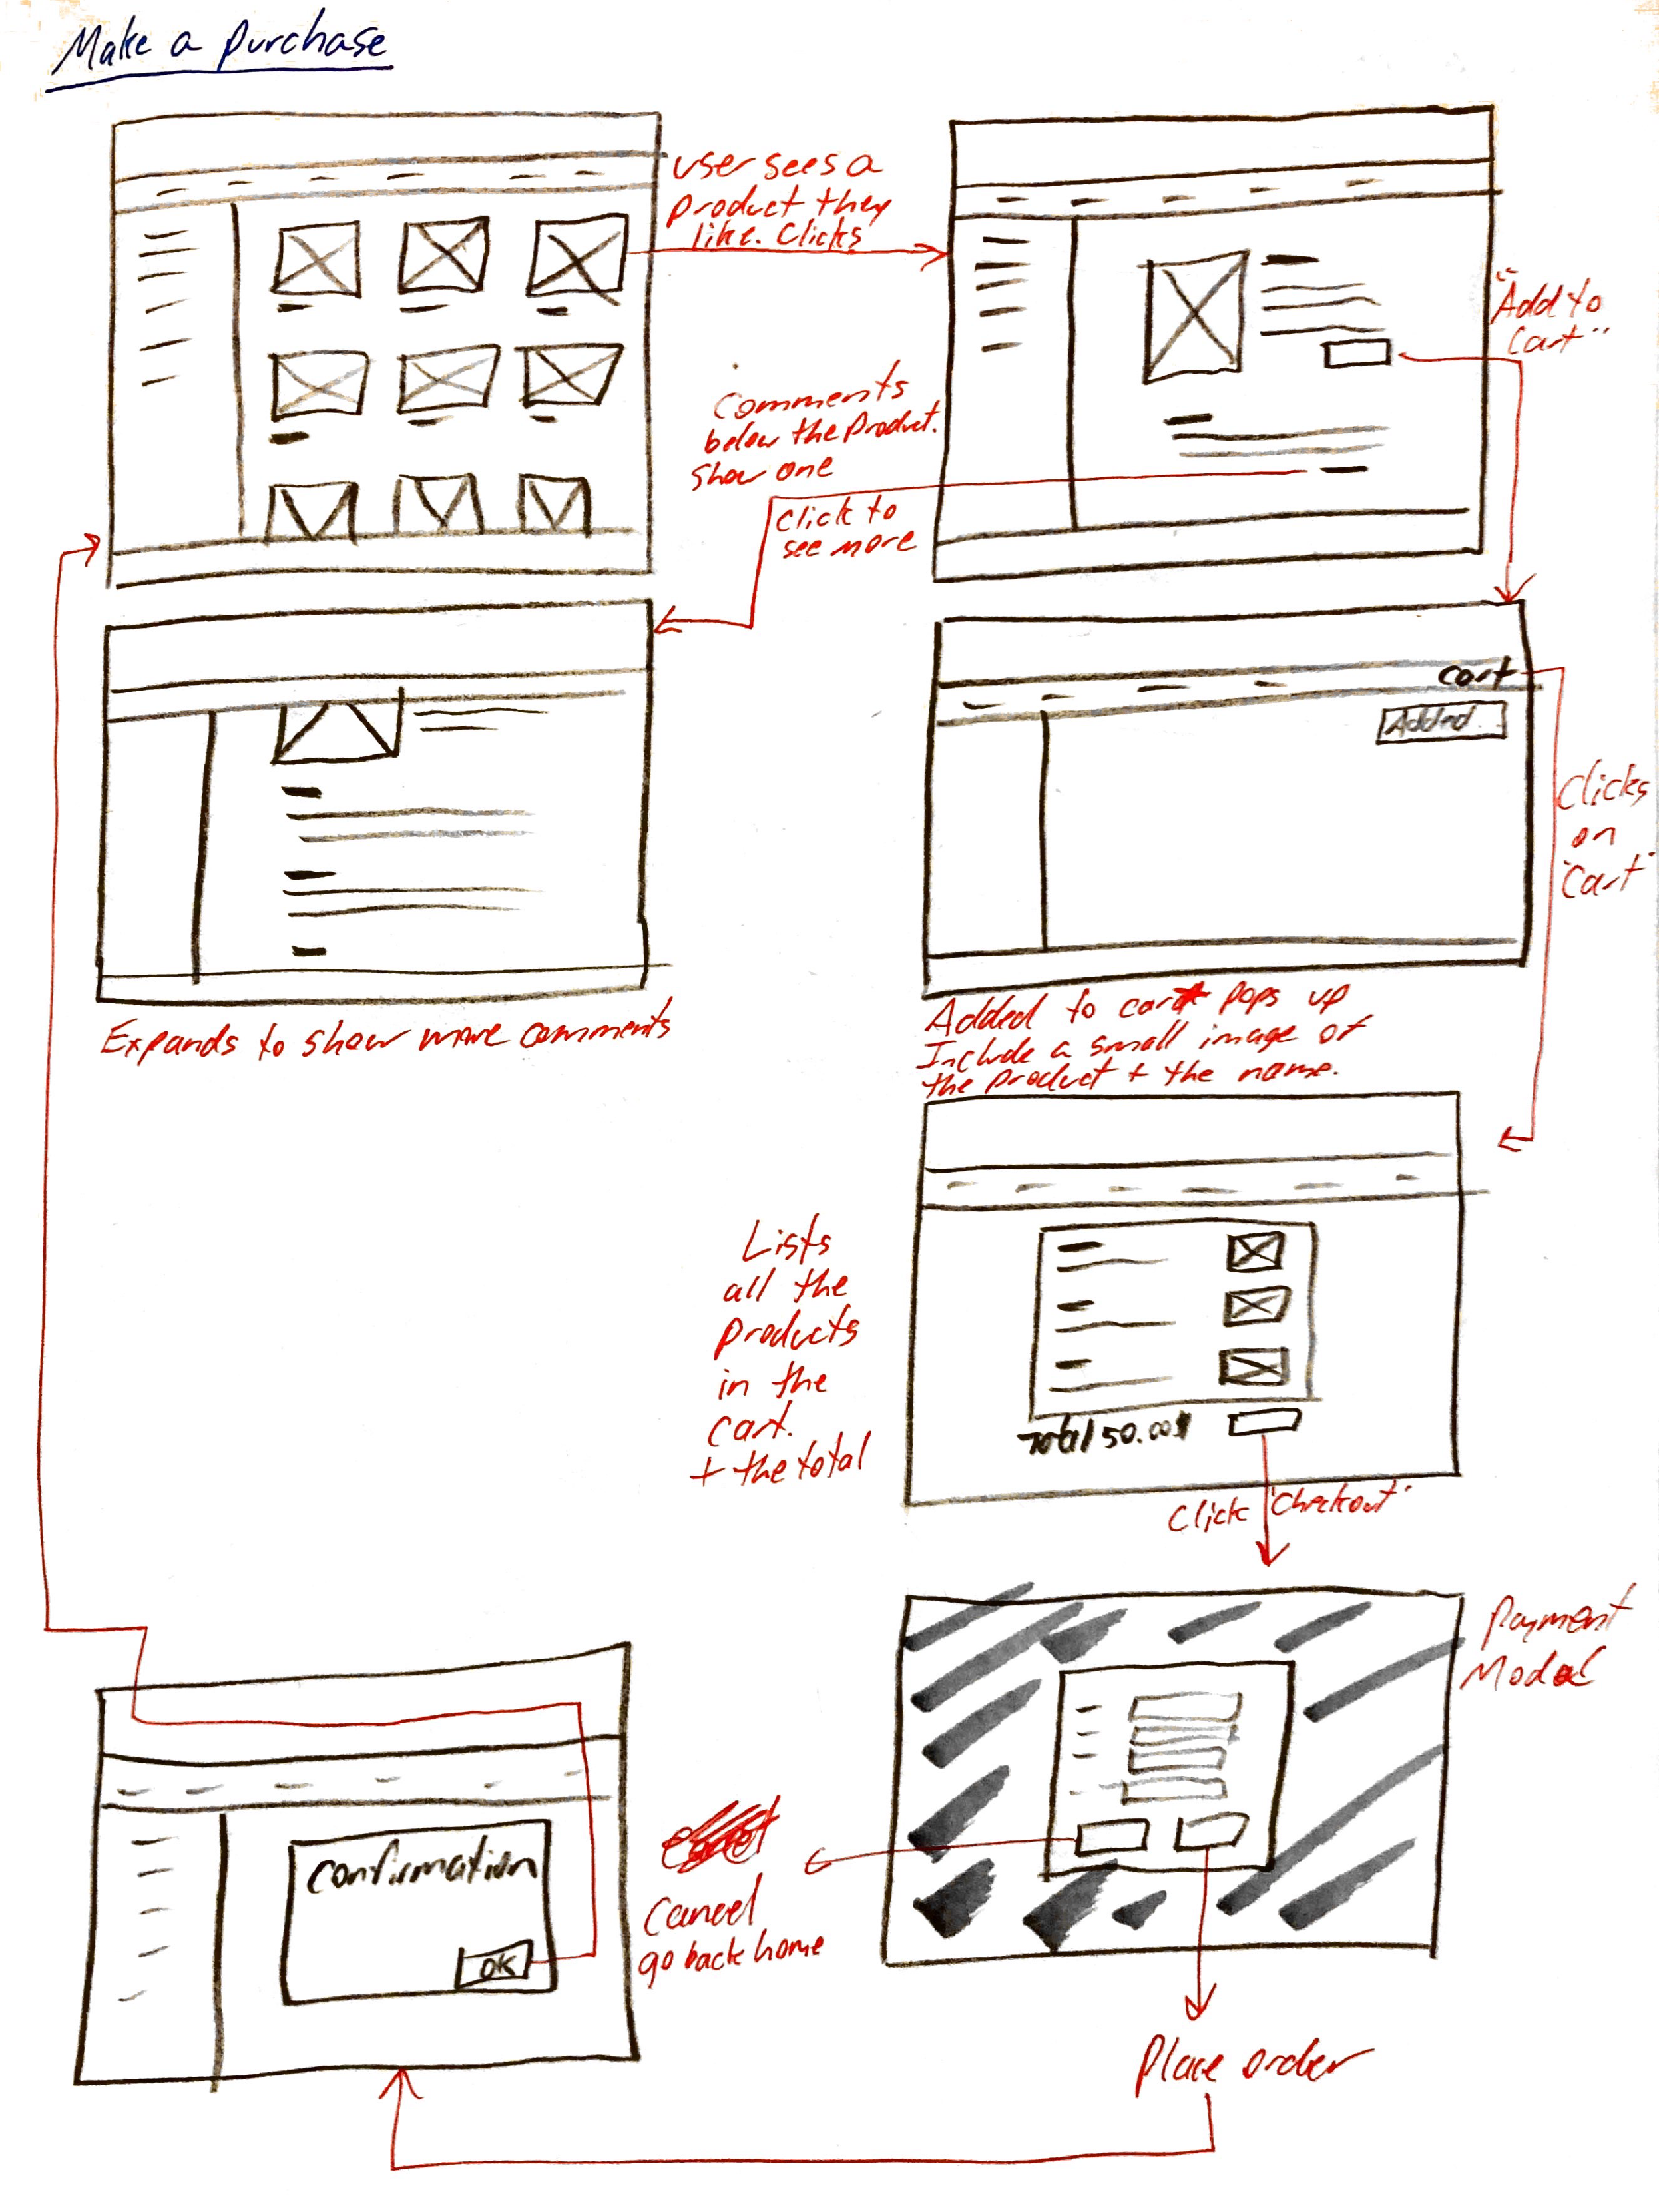 Make a purchase
user sees a
product they
like. Clicks
"Add to
Cart"
Comments
below the product.
Show one
Click to
see more
cart
Added
Clicks
on
"Cart"
Expands to show more comments
Added to cart pops up
Include a small image of
the product + the name.
Lists
all the
products
in the
cart.
+ the total
Total 50.00$
Click "Checkout"
Payment
Modal
Confirmation
OK
Cancel
go back home
Place order